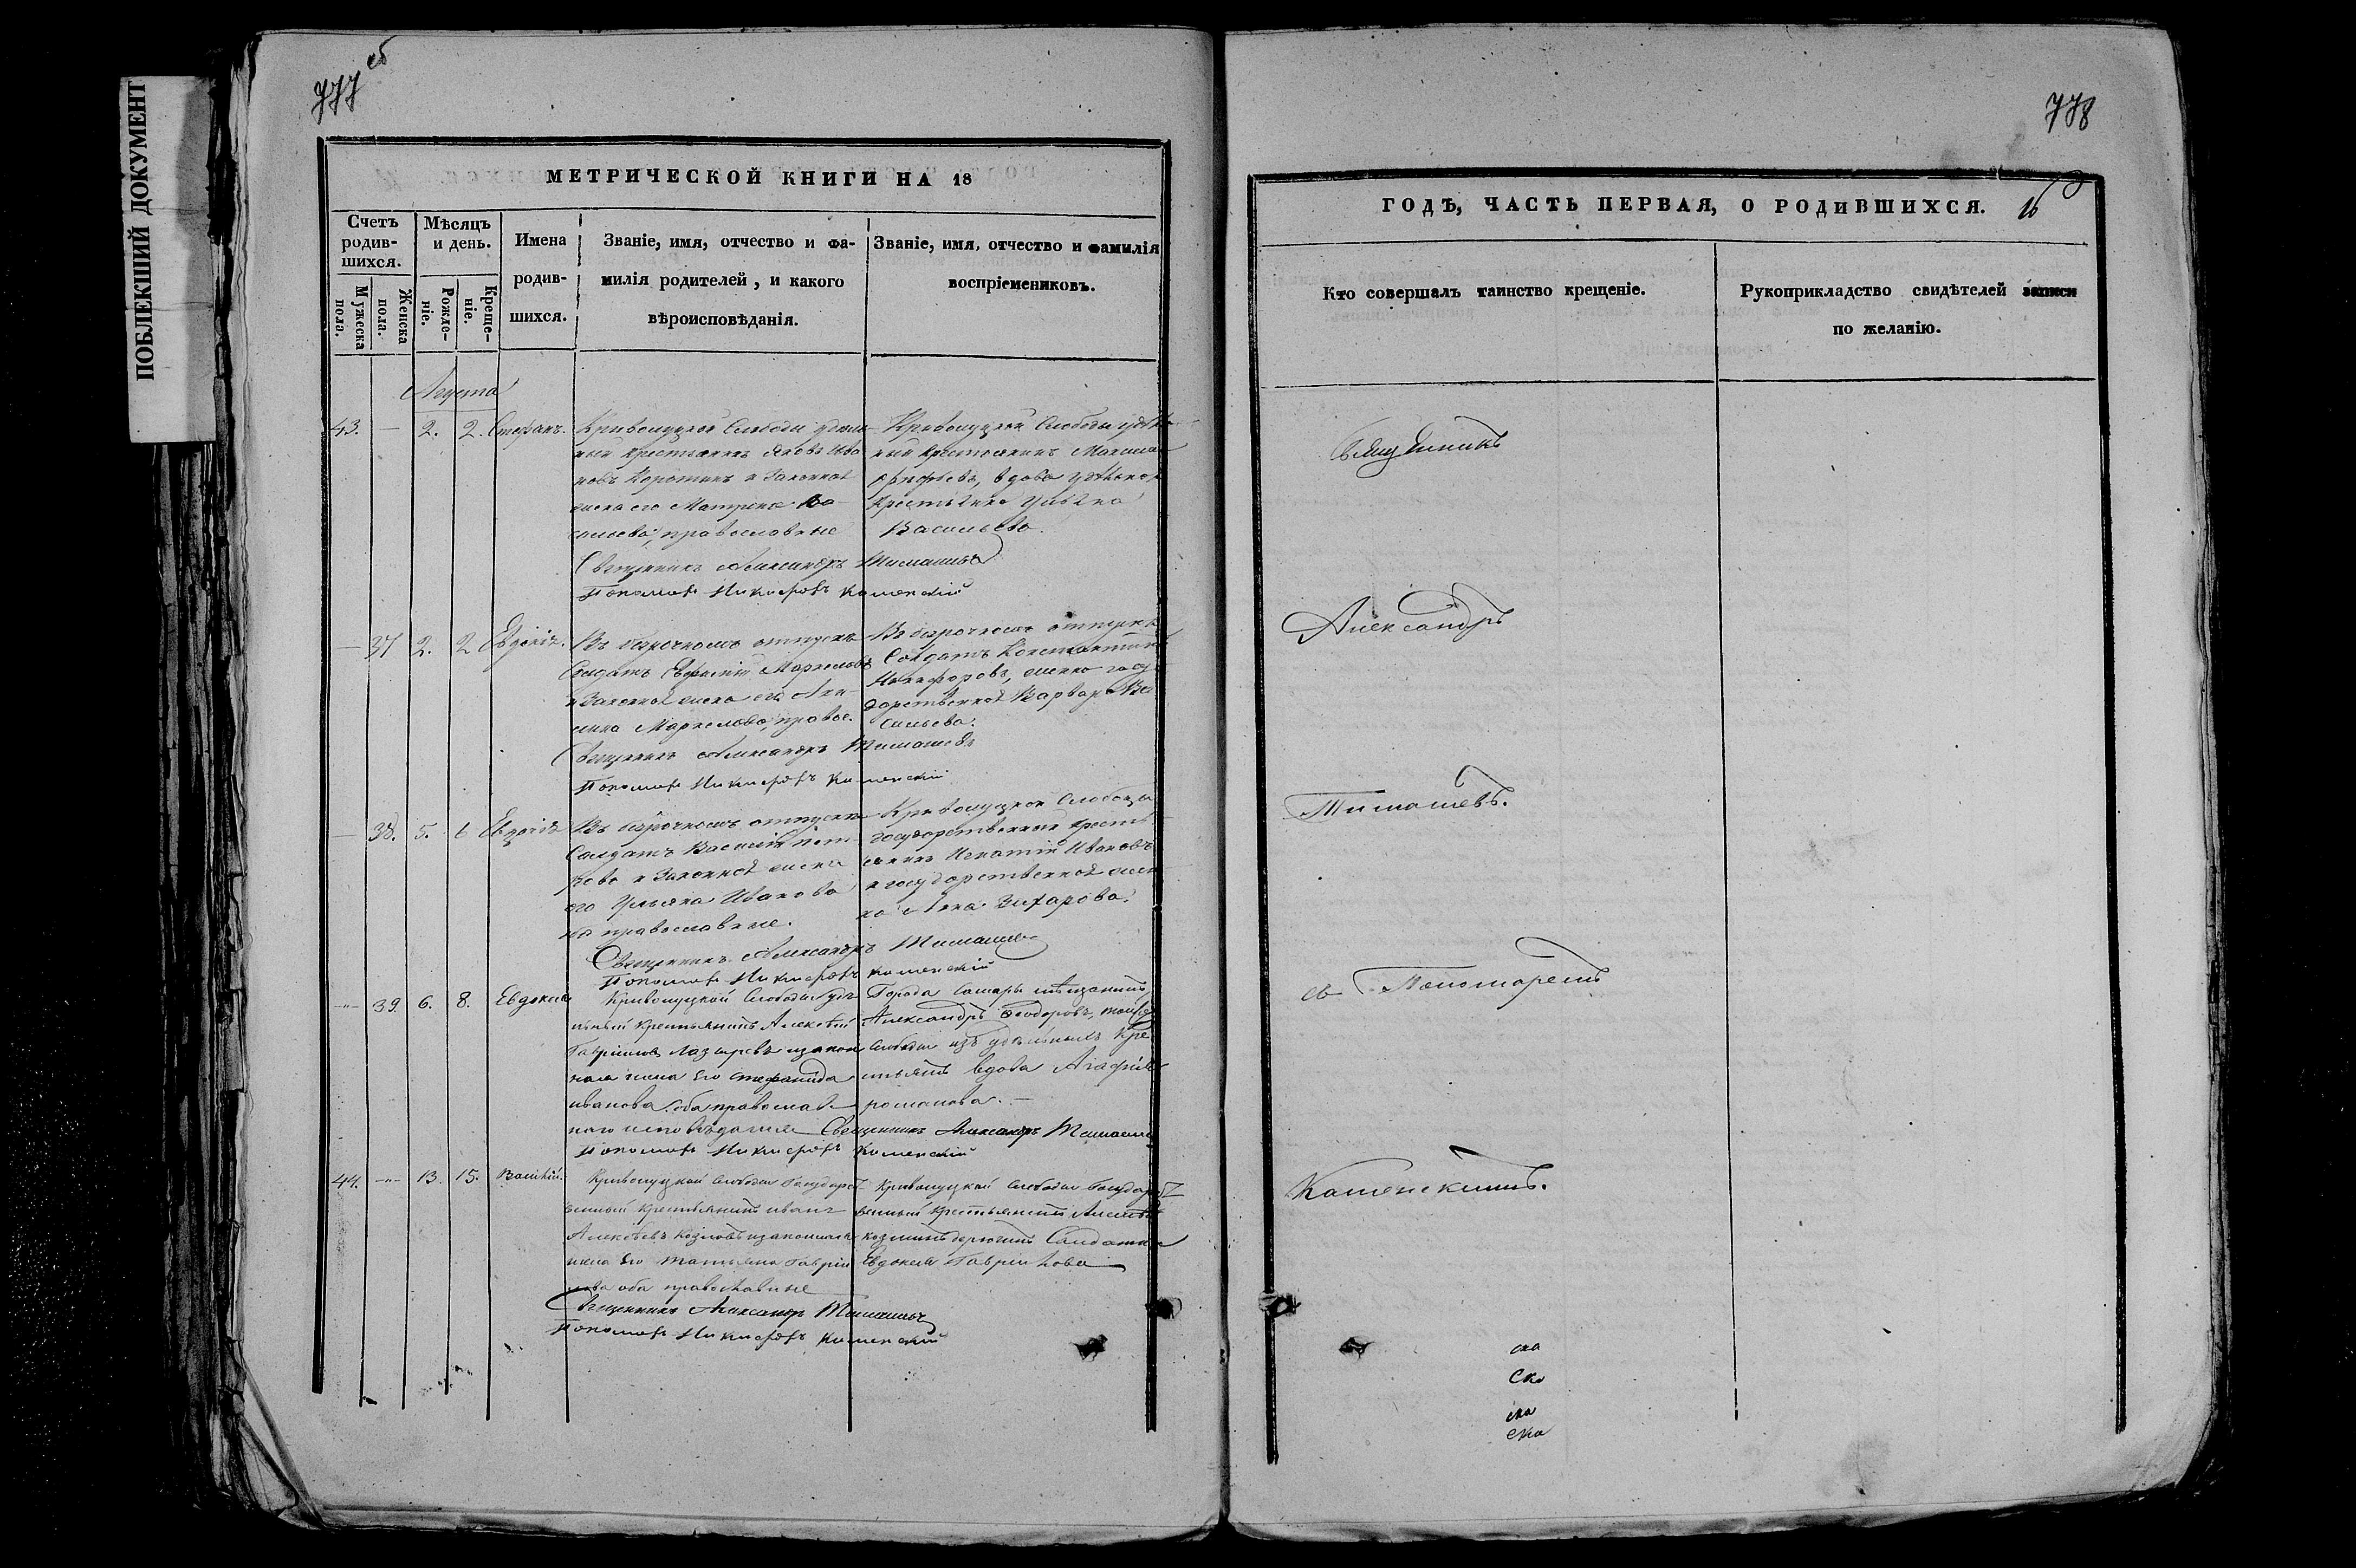 ПОБЛЕКШИЙ ДОКУМЕНТ
777 об
МЕТРИЧЕСКОЙ КНИГИ НА 18
Счетъ родив-шихся.
Мужеска пола.
Женска пола.
Мѣсяцъ и день.
Рожде-ніе.
Креще-ніе.
Имена родив-шихся.
Званіе, имя, отчество и фа-
милія родителей, и какого
вѣроисповѣданія.
Званіе, имя, отчество и фамилія
воспріемениковъ.
Августа
43. — 2. 2. Стефанъ.
Криволуцкой Слободы удѣль-
ный крестьянинъ Яковъ Ива
новъ Коротинъ и Законная
жена его Матрена Ва-
сильева, православные
Криволуцкой Слободы удѣль
ный крестьянинъ Максим
вдова удѣльнаго
крестьянина Ульяна
Васильева.
Священникъ Александръ Тимашевъ
Пономарь Никифоръ Каменскій
— 37 2. 2 Евдокія.
Въ безсрочномъ отпускѣ
Солдатъ Маркеловъ
и Законная жена его Аки-
лина Маркелова, правос.
Въ безсрочномъ отпускѣ
Солдатъ Константинъ
Никифоровъ, жена госу-
дарственная Варвара Ва
сильева.
Священникъ Александръ Тимашевъ
Пономарь Никифоръ Каменскій
— 38. 5. 6 Евдокія
Въ безсрочномъ отпускѣ
Солдатъ Василій Пет-
ровъ и Законная жена
его Ульяна Иванова
православные.
Криволуцкой Слободы
государственный кресть-
янинъ Игнатій Ивановъ
и государственная жен
ка Анна Захарова.
Священникъ Александръ Тимашевъ
Пономарь Никифоръ Каменскій
— 39. 6. 8. Евдокия
Криволуцкой Слободы удѣ
льный крестьянинъ Алексѣй
Гавриловъ Лазаревъ изакон
ная жена Его Стефанида
иванова оба православ-
наго исповѣдания
Города Самары мѣщанинъ
Александръ Феодоровъ, тойже
слободы изъ удѣльныхъ кре
стьянъ вдова Агафия
романова. —
Священникъ Александръ Тимашевъ
Пономарь Никифоръ Каменскій
44. — 13. 15. Василій.
Криволуцкой слободы Государст
венный крестьянинъ иванъ
Алексѣевъ Козловъ изаконная
жена Его татьяна Гаврии
лова оба православные
Криволуцкой слободы Государст
венный крестьянинъ Алексѣй
Солдатка
Евдокия Гавриилова
Священникъ Александръ Тимашевъ
Пономарь Никифоръ Каменскій
778
ГОДЪ, ЧАСТЬ ПЕРВАЯ, О РОДИВШИХСЯ. 16
Кто совершалъ таинство крещеніе.
Рукоприкладство свидѣтелей записи
по желанію.
Священникъ
Александръ
Тимашевъ.
съ Пономаремъ
Каменскимъ.